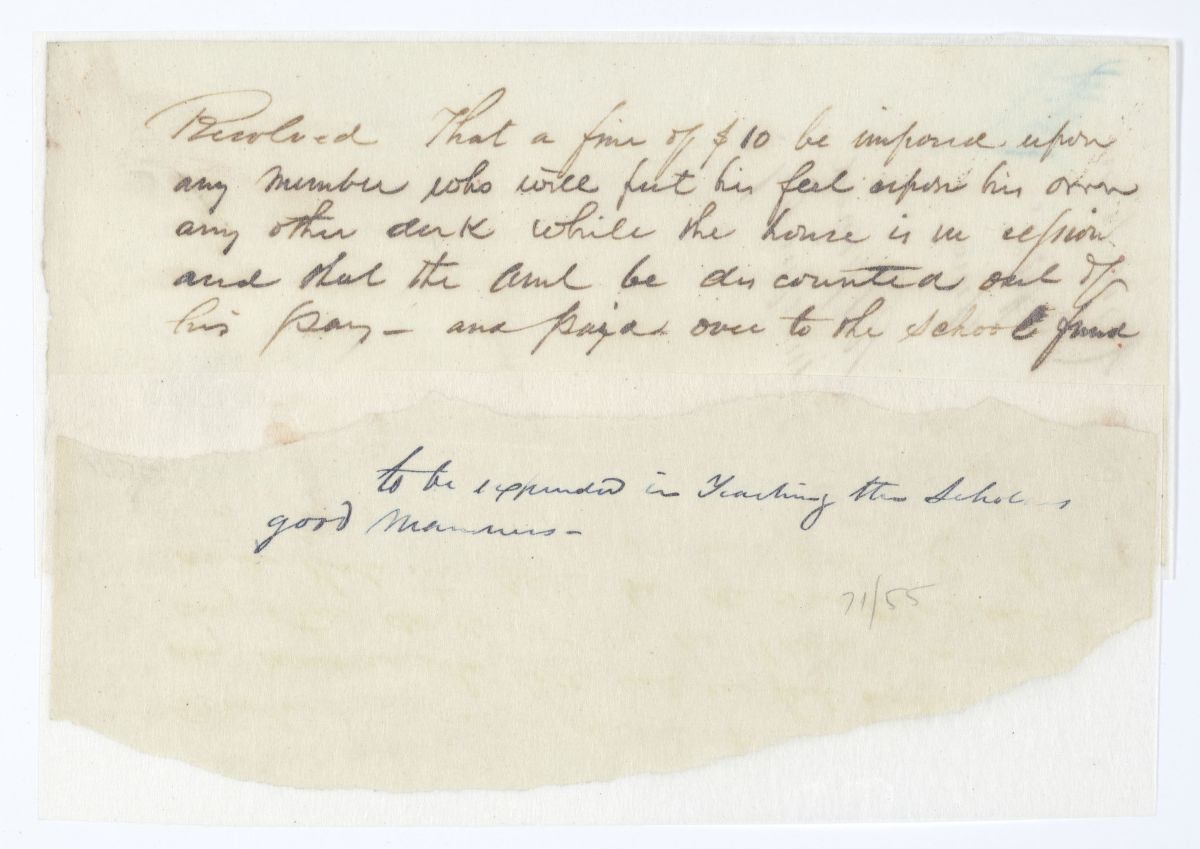 Resolved That a fine of $10 be imposed upon
any member who will put his feet upon his own or
any other desk while the house is in session
and that the amt be discounted out of
his pay - and paid over to the school fund
to be expended in Teaching the Scholars
good manners -
71/55